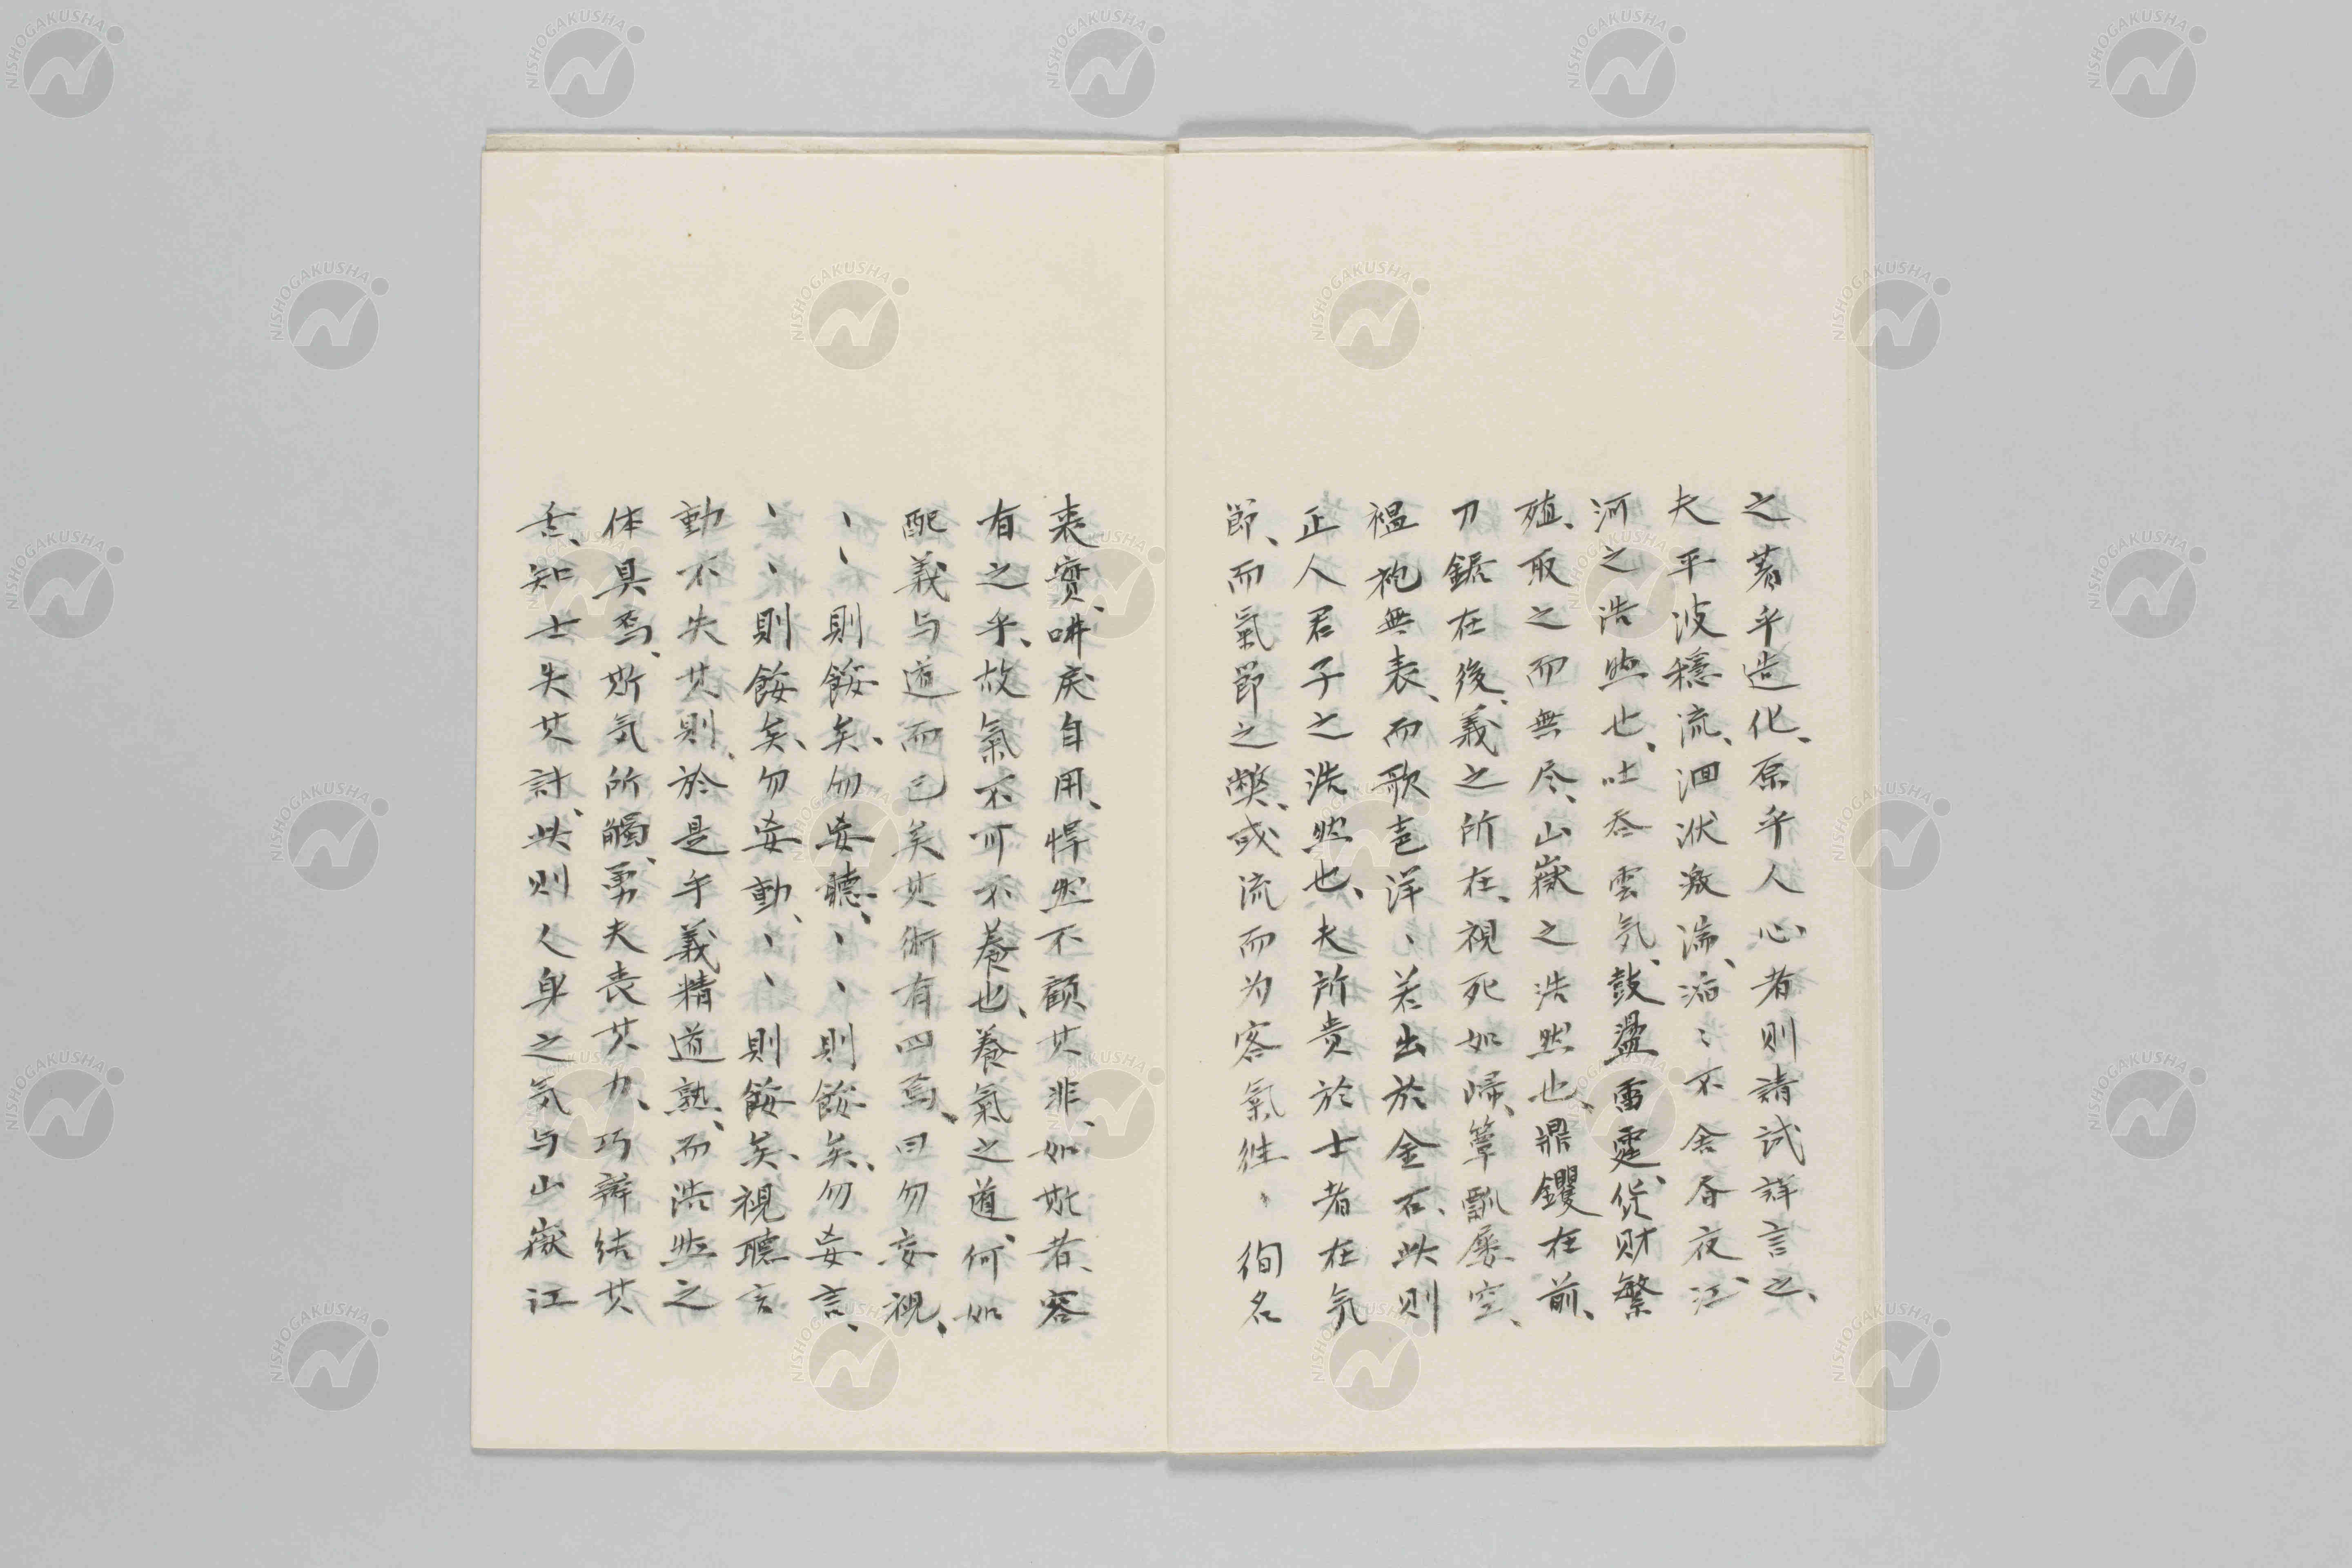 之著乎造化、原乎人心者則請試詳言之、
夫平波穩流、洄洑激湍、滔〻不舍昼夜、江
河之浩然也、吐吞雲気、鼓盪雷霆、貨財繁
殖、取之而無尽、山嶽之浩然也、鼎钁在前、
刀鋸在後、義之所在、視死如帰、簞瓢屡空、
褞袍無表、而歌声洋、若出於金石、此則
正人君子之浩然也、夫所貴於士者在気
節、而氣節之弊、或流而为客氣徃、徇名
喪實、咈戾自用、悍然不顧其非、如斯者、容
有之乎、故氣不可不養也、養氣之道、何如
配義与道而已矣其術有四焉、曰勿妄視、
、、則餒矣、勿妄聽、、、則餒矣、勿妄言、
、、則餒矣、勿妄動、、、則餒矣、視聽言
動不失其則、於是乎義精道熟、而浩然之
体具焉、斯気所觸、勇夫喪其力、巧辯結其
舌、知士失其計、此則人身之気与山嶽江
NISHOGAKUSHA